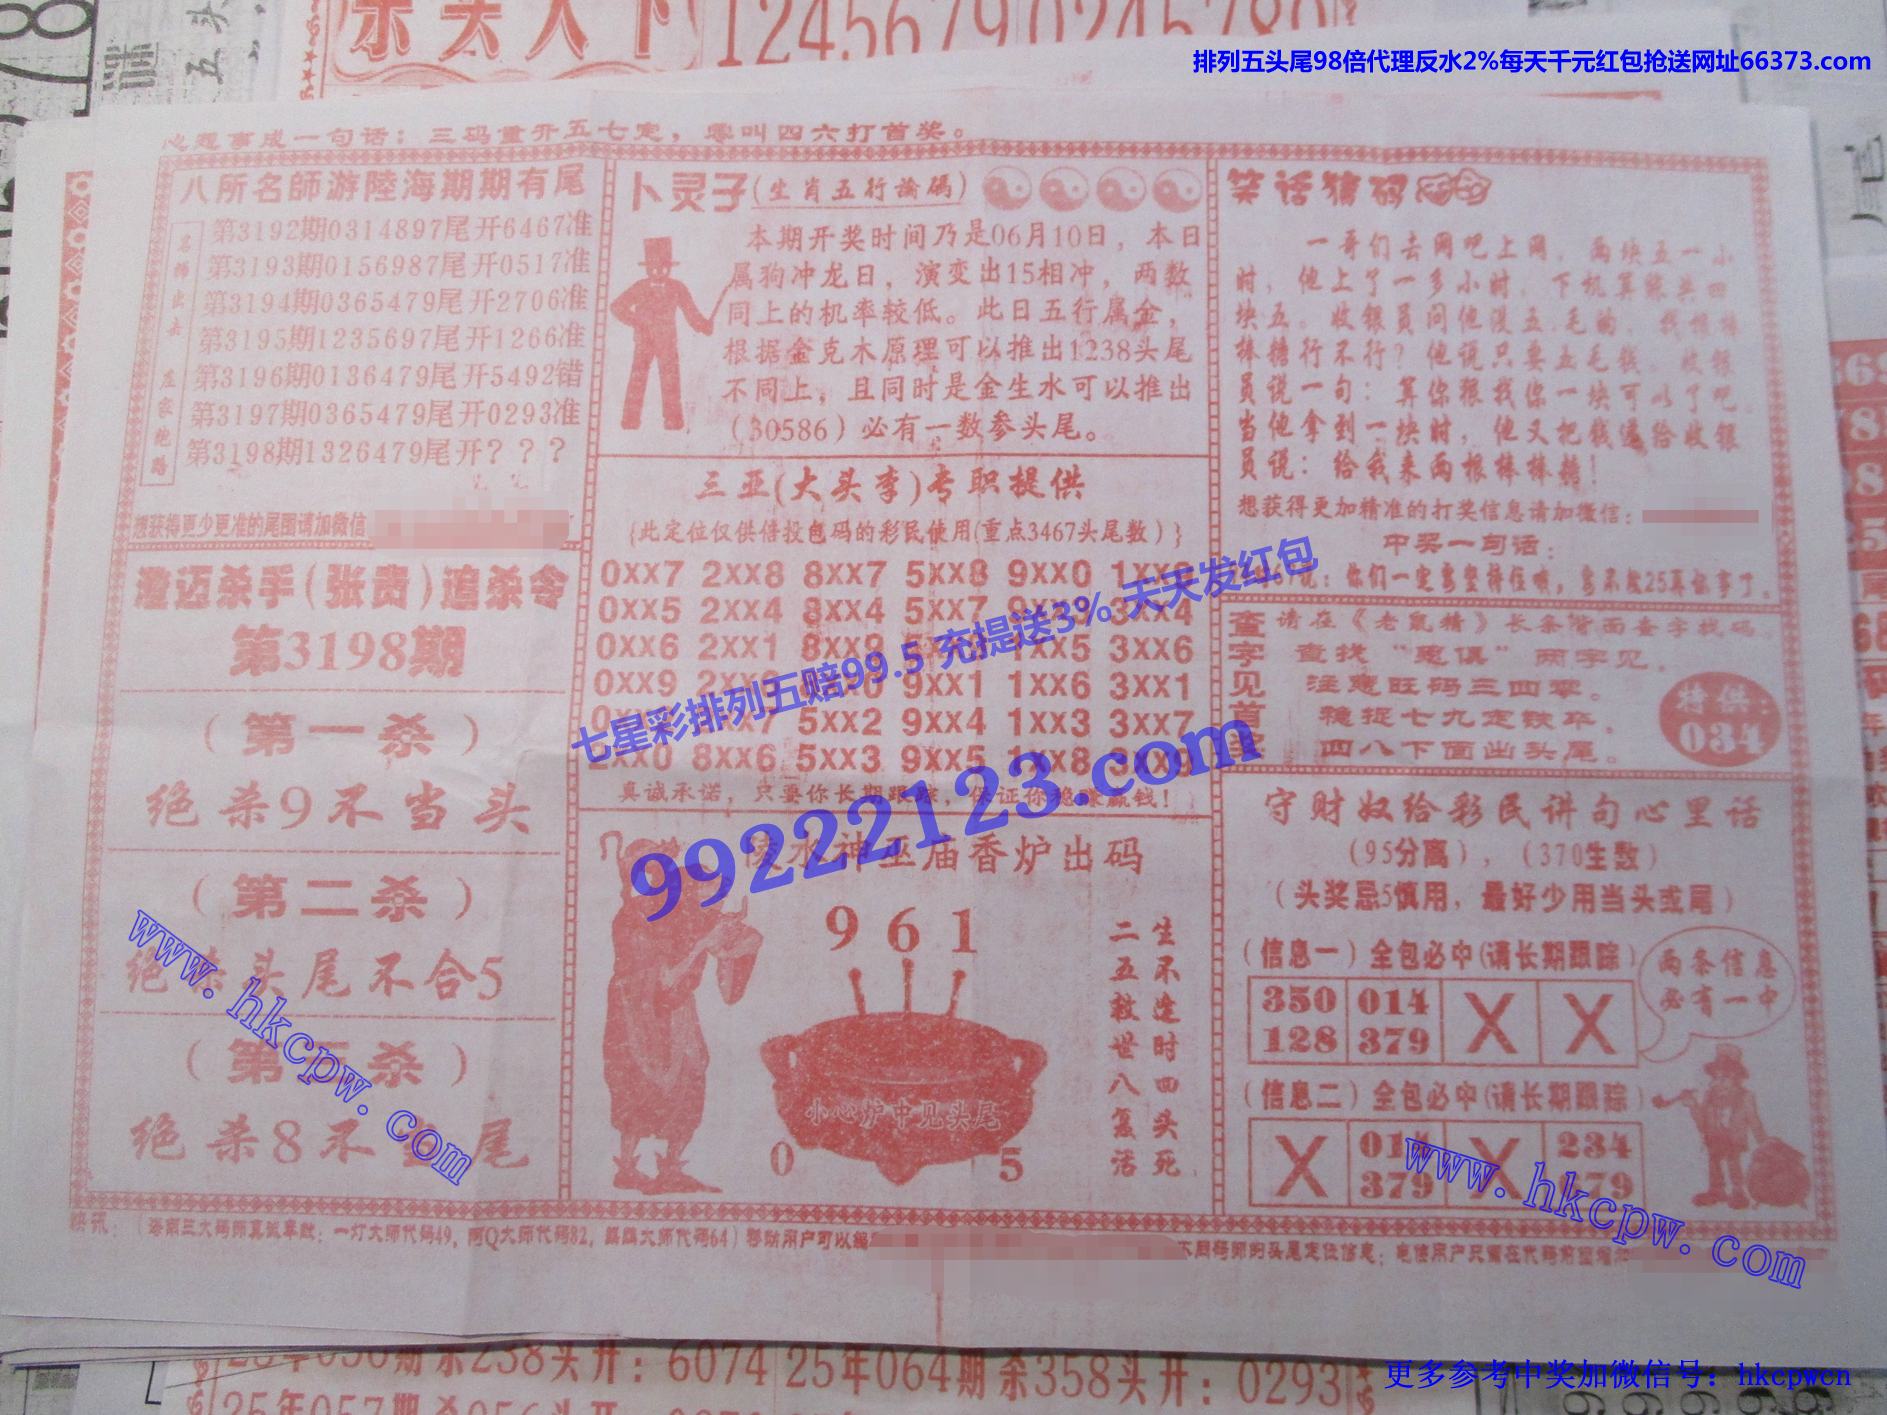 1245679 0245789
排列五头尾98倍代理反水2%每天千元红包抢送网址66373.com
心想事成一句话：三码重开五七定，零叫四六打首奖。
八所名師游陸海期期有尾
第3192期0314897尾开6467准
第3193期0156987尾开0517准
第3194期0365479尾开2706准
第3195期1235697尾开1266准
第3196期0136479尾开5492错
第3197期0365479尾开0293准
第3198期1326479尾开？？？
想获得更少更准的尾图请加微信
澄迈杀手(张贵)追杀令
第3198期
（第一杀）
绝杀9不当头
（第二杀）
绝杀头尾不合5
（第三杀）
绝杀8不当尾
卜灵子(生肖五行论码)
本期开奖时间乃是06月10日，本日
属狗冲龙日，演变出15相冲，两数
同上的机率较低。此日五行属金，
根据金克木原理可以推出1238头尾
不同上，且同时是金生水可以推出
（30586）必有一数参头尾。
三亚(大头李)专职提供
{此定位仅供倍投包码的彩民使用(重点3467头尾数)}
0XX7 2XX8 8XX7 5XX8 9XX0
0XX5 2XX4 8XX4 5XX7 3XX4
0XX6 2XX1 1XX5 3XX6
0XX9 9XX1 1XX6 3XX1
5XX2 9XX4 1XX3 3XX7
2XX0 8XX6 5XX3 9XX5 1XX8 3XX9
真诚承诺，只要你长期跟踪，保证你稳赚赢钱！
七星彩排列五赔99.5 充提送3% 天天发红包
99222123.com
陵水神巫庙香炉出码
9 6 1
小心炉中见头尾
0 5
生不逢时四头死
二五救世八复活
笑话猜码
一哥们去网吧上网，两块五一小
时，他上了一多小时，下机算账共四
块五。收银员问他没五毛的，找根棒
棒糖行不行？他说只要五毛钱。收银
员说一句：算你狠找你一块可以了吧。
当他拿到一块时，他又把钱递给收银
员说：给我来两根棒棒糖！
想获得更加精准的打奖信息请加微信：
中奖一句话：
说：你们一定要坚持住哦，
查字见首奖
请在《老鼠精》长条背面查字找码。
两字见，
注意旺码三四零。
稳捉七九定铁卒，
四八下面出头尾。
特供：
034
守财奴给彩民讲句心里话
（95分离），（370生数）
（头奖忌5慎用，最好少用当头或尾）
（信息一）全包必中(请长期跟踪)
350 014 X X
128 379
两条信息
必有一中
（信息二）全包必中(请长期跟踪)
X 014 X 234
379
快讯：（海南三大码师真诚奉献：一灯大师代码49，阿Q大师代码82，麒麟大师代码64）移动用户可以编
不同码师的头尾定位信息；电信用户只需在代码前
www.hkcpw.com
www.hkcpw.com
期杀238头开：6074 25年064期杀358头开：0293
25年057期杀056头开
更多参考中奖加微信号：hkcpwcn